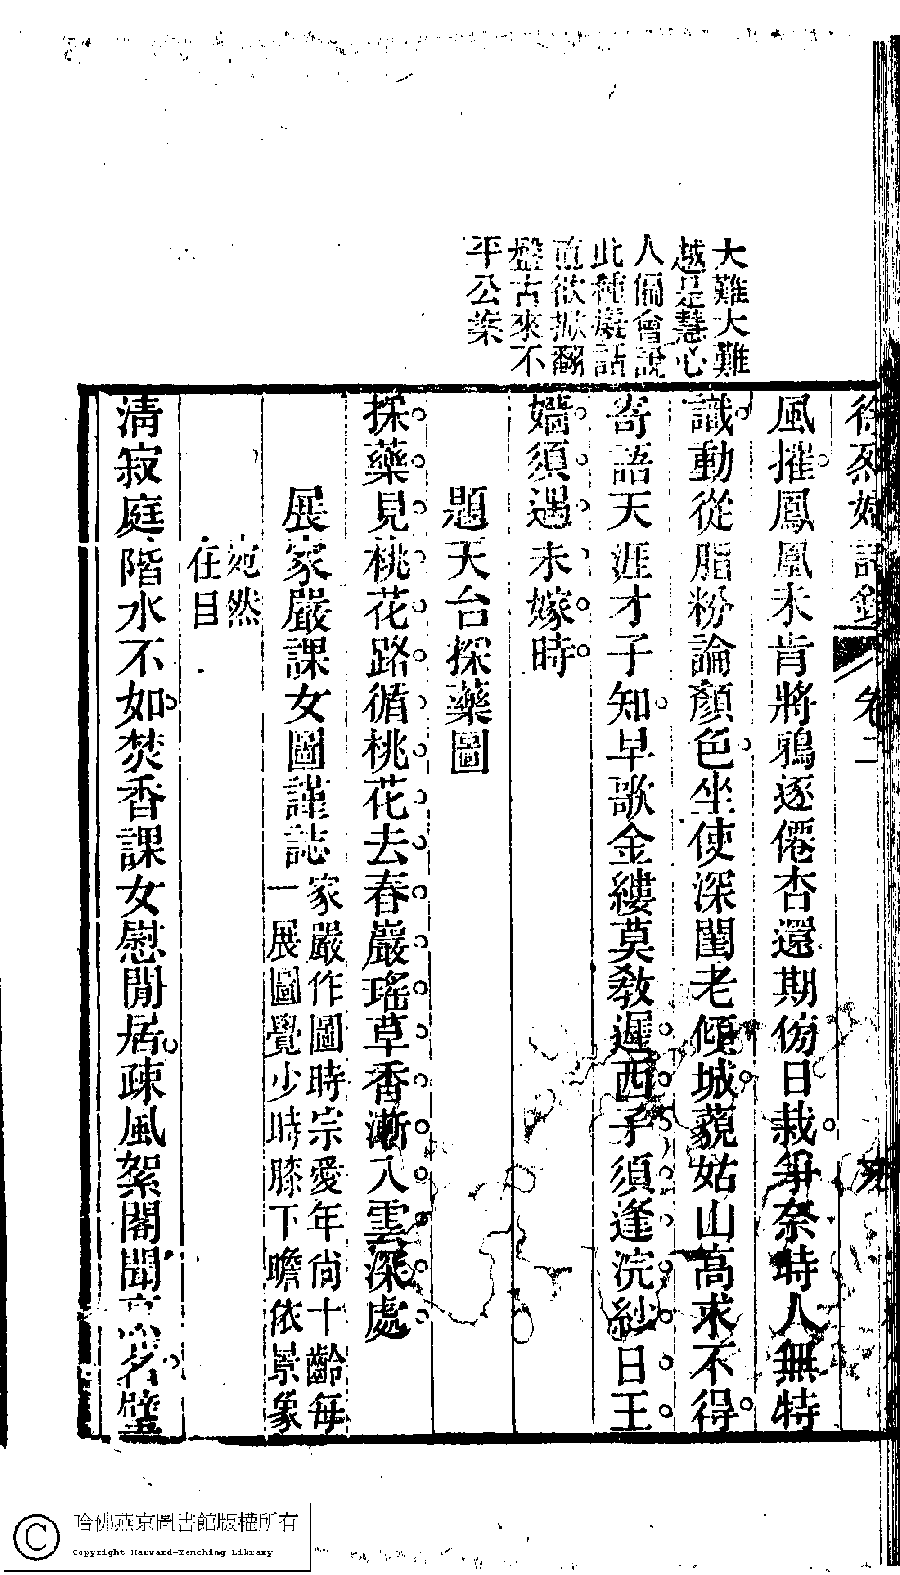 大難大難
越是慧心
人偏會說
此種癡話
直欲掀翻
盤古來不
平公案
卷二
風摧鳳凰未肯將鴉逐僊杏還期傍日栽爭奈時人無特
識動從脂粉論顏色坐使深閨老傾城藐姑山高求不得
寄語天涯才子知早歌金縷莫教遲西子須逢浣紗日王
嬙須遇未嫁時
題天台採藥圖
採藥見桃花路循桃花去春巖瑤草香漸入雲深處
展家嚴課女圖謹誌
家嚴作圖時宗愛年尙十齡每
一展圖覺少時膝下瞻依景象
宛然
在目
清寂庭階水不如焚香課女慰閒居疎風絮閣聞茗璧
哈佛燕京圖書館版權所有
Copyright Harvard-Yenching Library